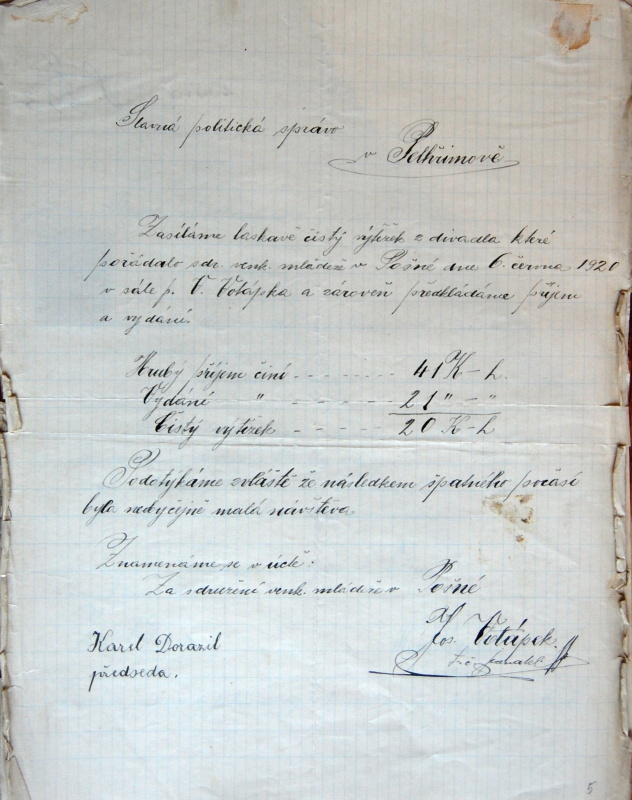 Slavná politická správo
v Pelhřimově
Zasíláme laskavě čistý výtěžek z divadla které
pořádalo sdr. venk. mládeže v Pošné dne 6. června 1920
v sále p. V. Votápka a zároveň předkládáme příjem
a vydání.
Hrubý příjem činí - - - - - - - 41 K - h.
Vydání " - - - - - - - 21 " - "
Čistý výtěžek - - - - - 20 K - h
Podotýkáme zvláště že následkem špatného počasí
byla neobyčejně malá návštěva
Znamenáme se v úctě:
Za sdružení venk. mládeže v Pošné
Jos. Votápek
Karel Dorazil
předseda.
5